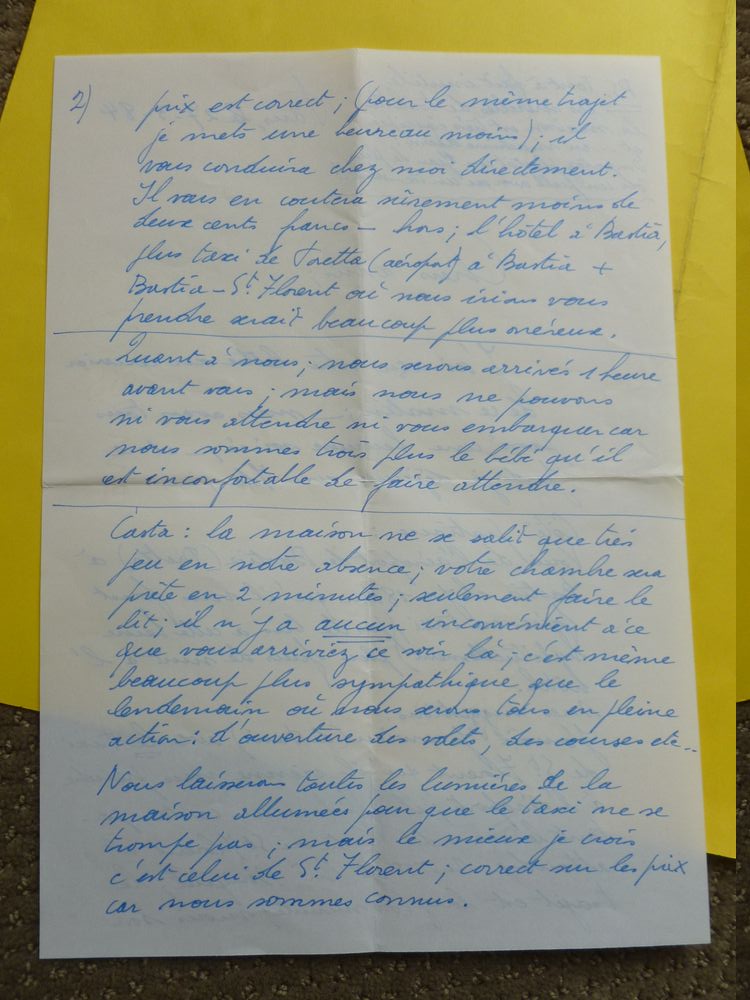 2) prix est correct ; (pour le même trajet
je mets une heure au moins) ; il
vous conduira chez moi directement.
Il vous en coutera sûrement moins de
deux cents francs - hors ; l'hôtel à Bastia,
plus taxi de Poretta (aéroport) à Bastia +
Bastia - St. Florent où nous irions vous
prendre serait beaucoup plus onéreux.
Quant à nous ; nous serons arrivés 1 heure
avant vous ; mais nous ne pouvons
ni vous attendre ni vous embarquer car
nous sommes trois plus le bébé qu'il
est inconfortable de faire attendre.
Casta : la maison ne se salit que très
peu en notre absence ; votre chambre sera
prête en 2 minutes ; seulement faire le
lit ; il n'y a aucun inconvénient à ce
que vous arriviez ce soir là ; c'est même
beaucoup plus sympathique que le
lendemain où nous serons tous en pleine
action : d'ouverture des volets, des courses etc...
Nous laisserons toutes les lumières de la
maison allumées pour que le taxi ne se
trompe pas ; mais le mieux je crois
c'est celui de St. Florent ; correct sur les prix
car nous sommes connus.